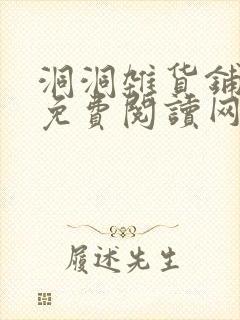 洞洞雜货鋪
免費閱讀网
履述先生